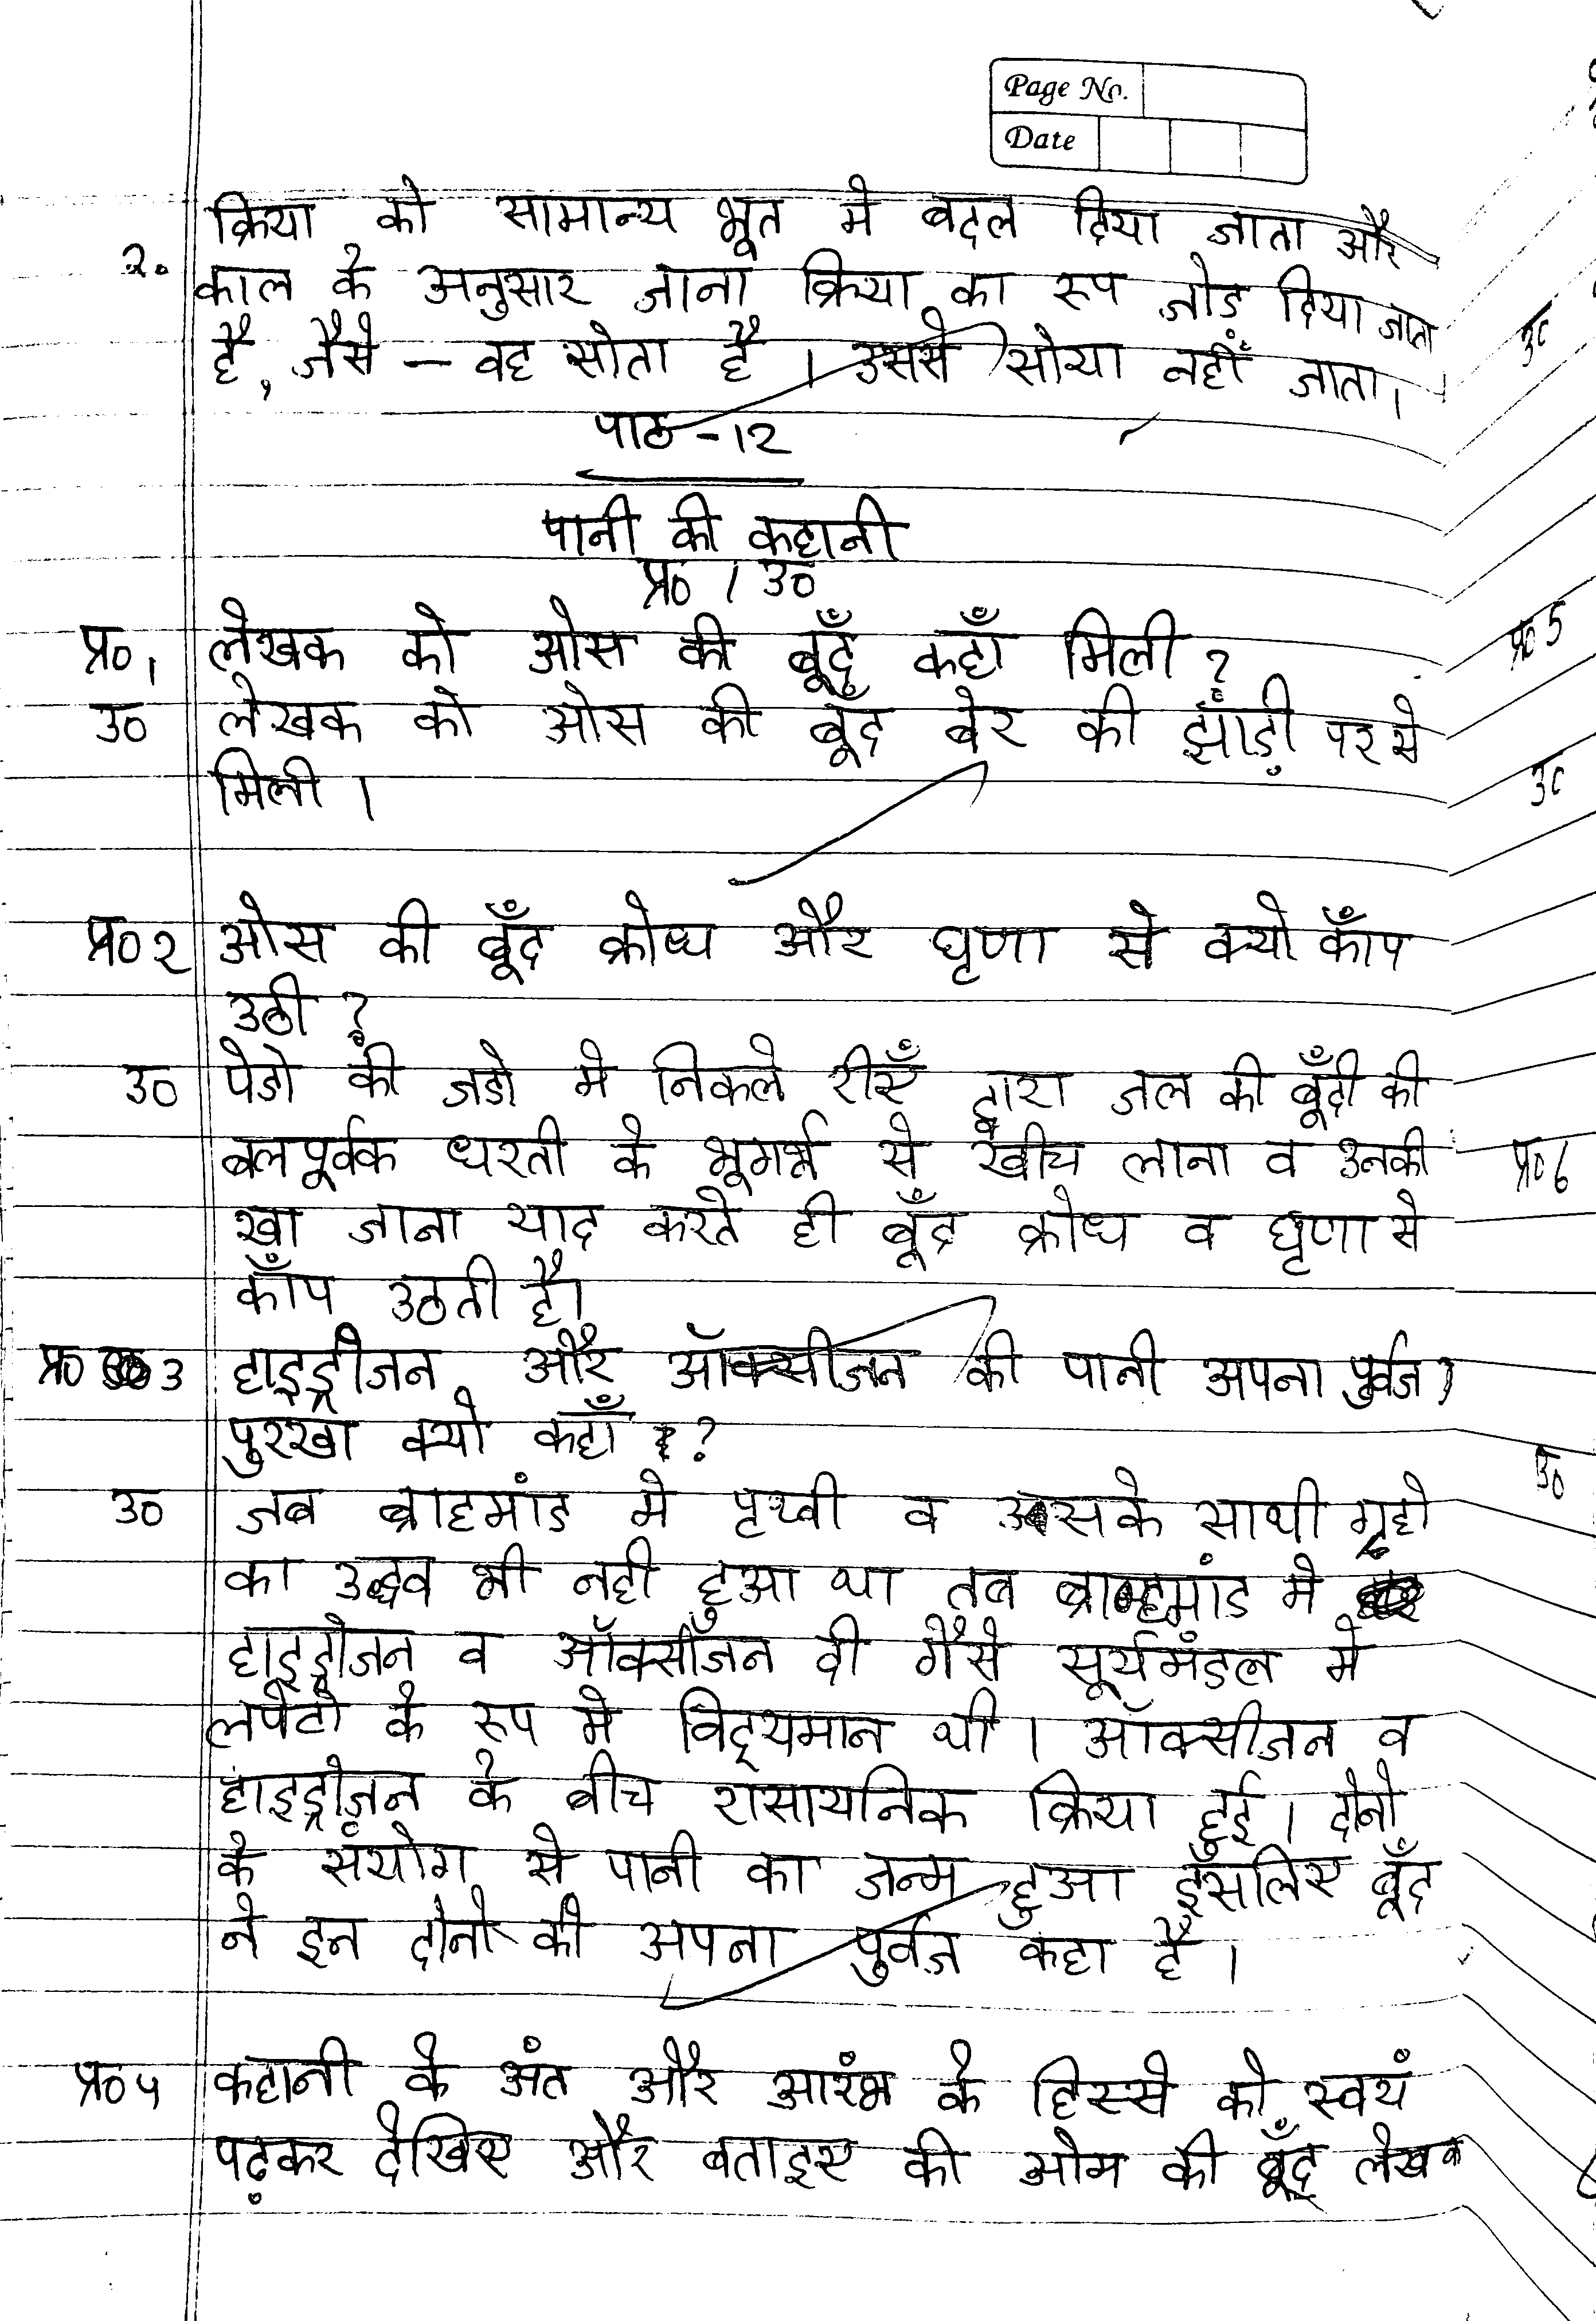 Page No.
Date
क्रिया को सामान्य भूत मे बदल दिया जाता और
२. काल के अनुसार जाना क्रिया का रूप जोड दिया जाता
है, जैसे – वह सोता है । उससे सोया नहीं जाता।
पाठ -१२
पानी की कहानी
प्र० / उ०
प्र० १ लेखक को ओस की बूँद कहाँ मिली ?
उ० लेखक को ओस की बूँद बेर की झाड़ी पर से
मिली ।
प्र० २ ओस की बूँद क्रोध और घृणा से क्यो काँप
उठी ?
उ० पेडो की जडो मे निकले रोएँ द्वारा जल की बूँदो की
बलपूर्वक धरती के भूगर्भ से खींच लाना व उनकी
खा जाना याद करते ही बूँद क्रोध व घृणा से
काँप उठती है।
प्र० 3 हाइड्रोजन और ऑक्सीजन की पानी अपना पुर्वज /
पुरखा क्यो कहाँ ?
उ० जब ब्राहमांड मे पृथ्वी व उसके साथी ग्रहो
का उद्भव भी नही हुआ था तब ब्राहमांड मे
हाइड्रोजन व ऑक्सीजन दो गैसे सूर्यमंडल मे
लपेटो के रूप मे विद्यमान थी । ऑक्सीजन व
हाइड्रोजन के बीच रासायनिक क्रिया हुई । दोनो
के संयोग से पानी का जन्म हुआ इसलिए बूँद
ने इन दोनो को अपना पुर्वज कहा है ।
प्र० ५ कहानी के अंत और आरंभ के हिस्से को स्वयं
पढ़कर देखिए और बताइए की ओस की बूँद लेखक
उ०
प्र० 5
उ०
प्र० 6
उ०